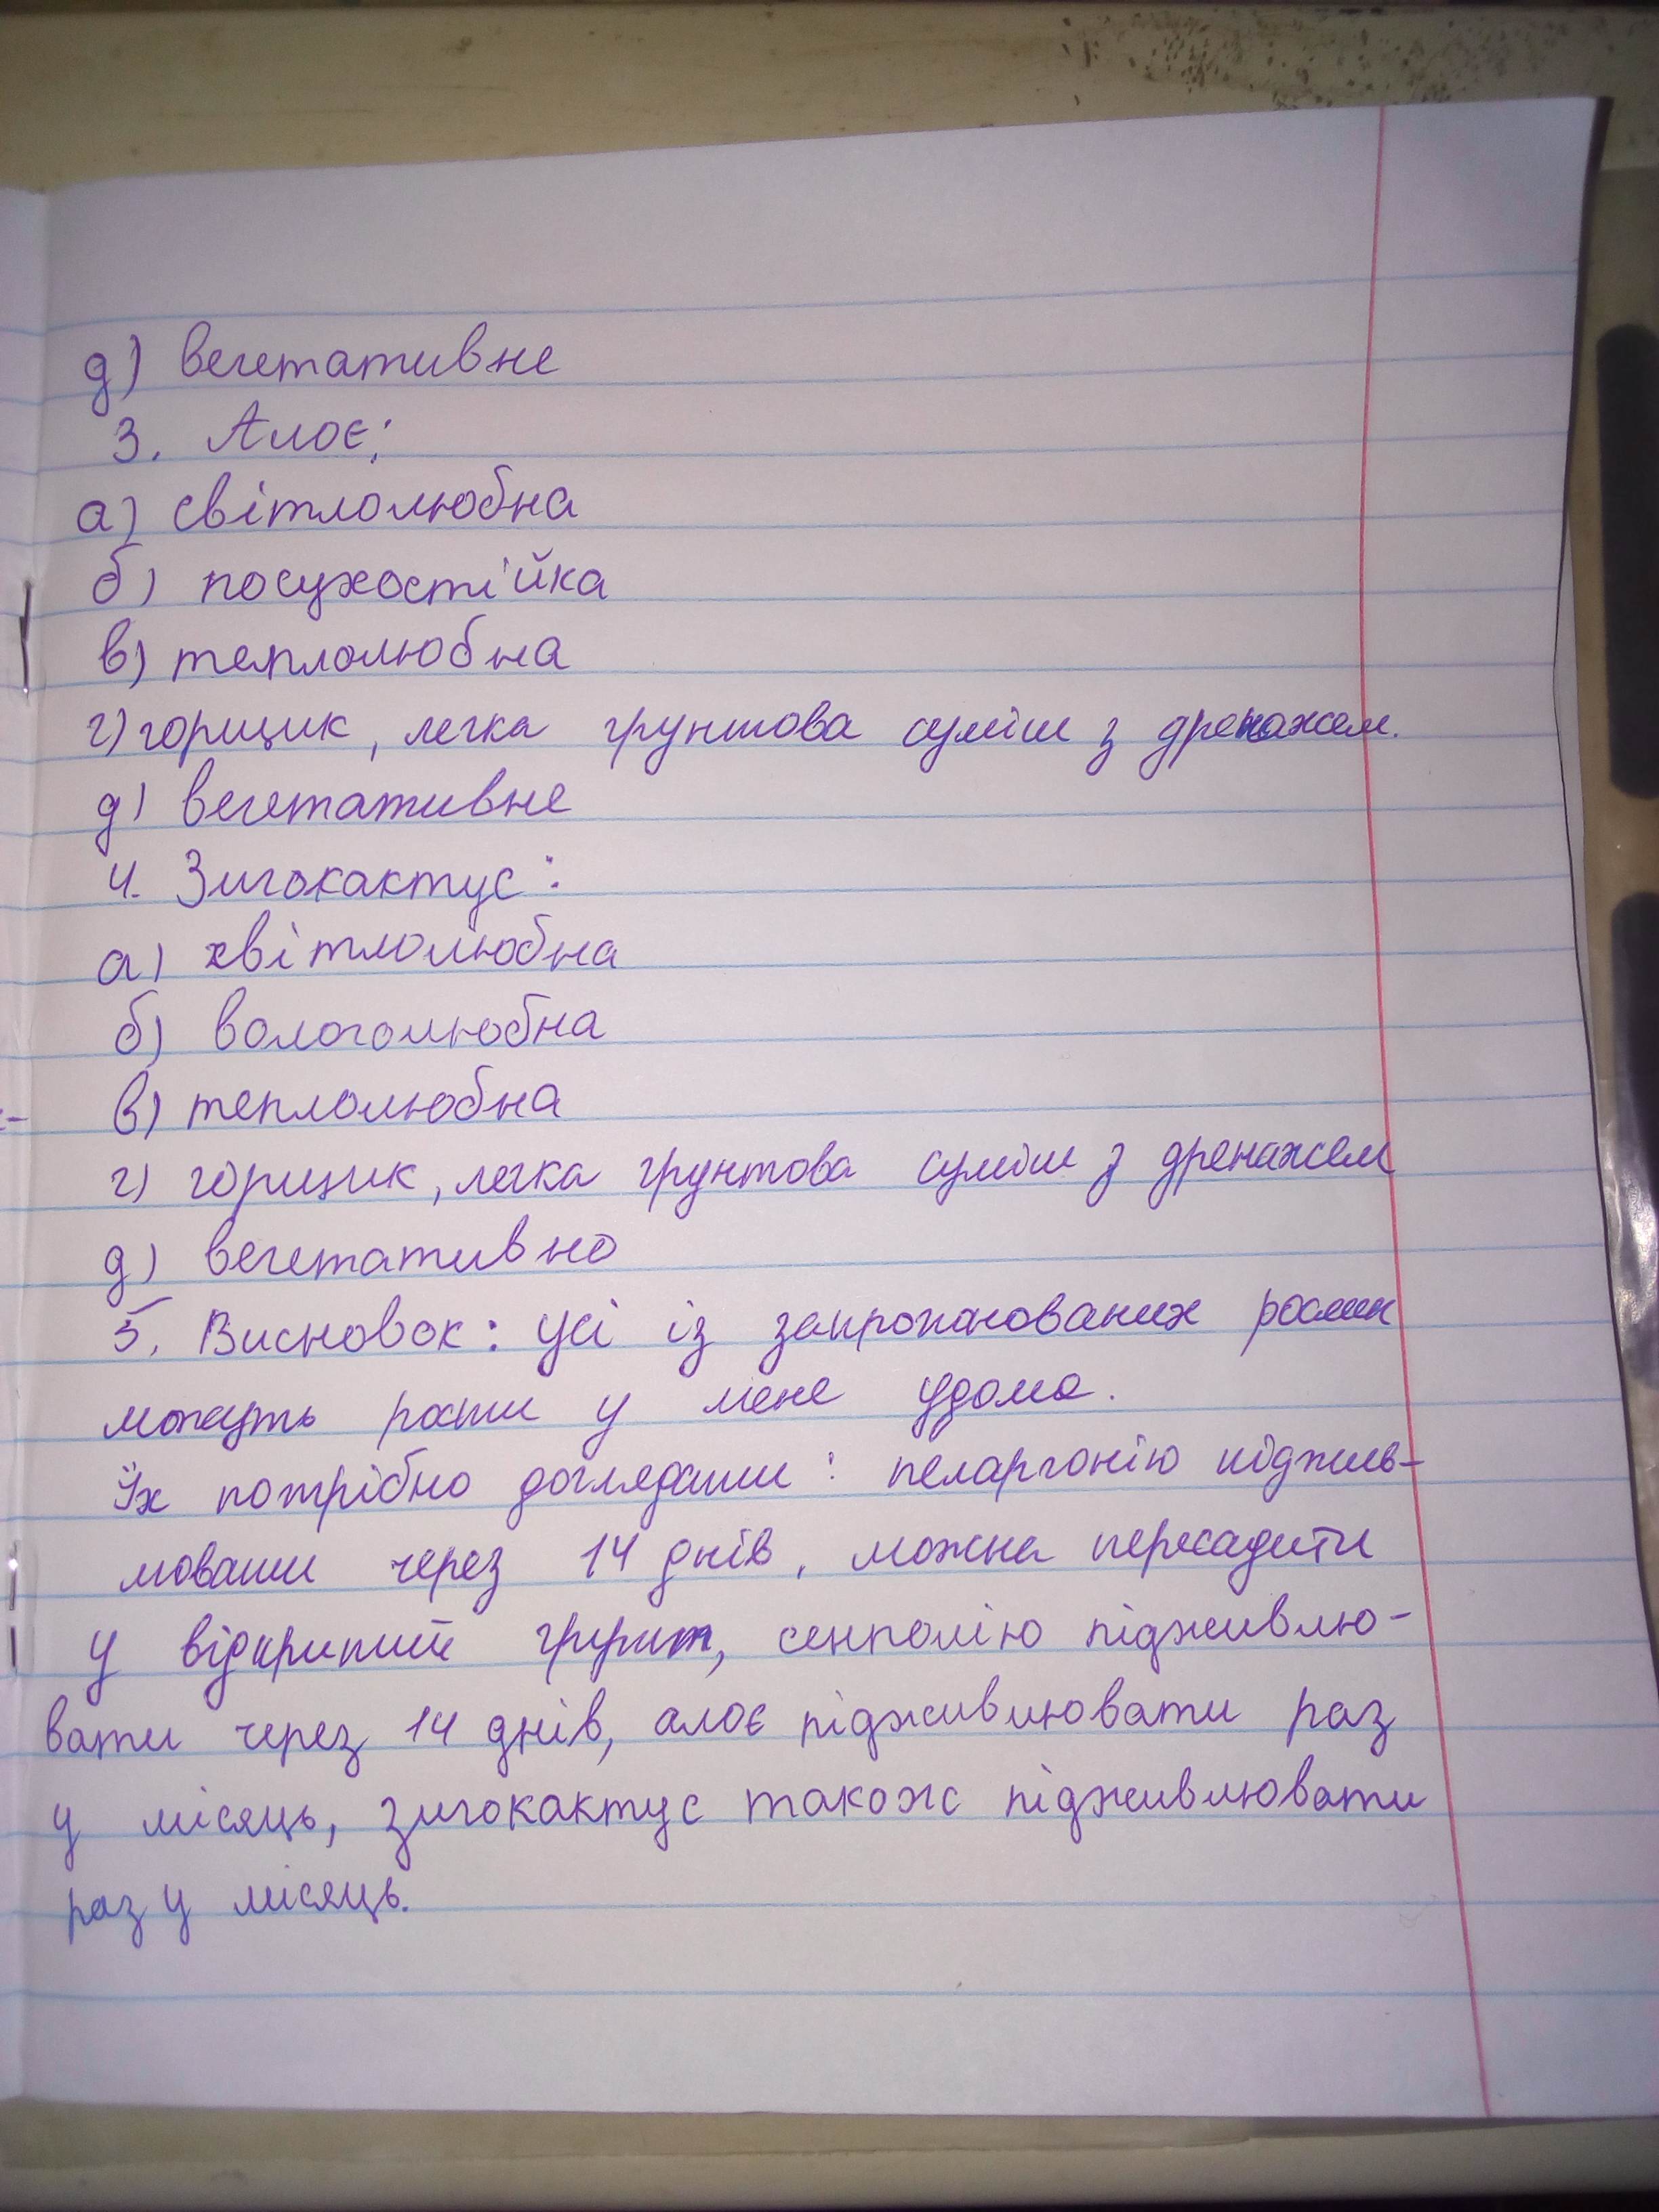 д) вегетативне
3. Алоє:
а) світлолюбна
б) посухостійка
в) теплолюбна
г) горщик, легка грунтова суміш з дренажем.
д) вегетативне
4. Зигокактус:
а) світлолюбна
б) вологолюбна
в) теплолюбна
г) горщик, легка грунтова суміш з дренажем
д) вегетативно
5. Висновок: усі із запропонованих рослин
можуть рости у мене удома.
Їх потрібно доглядати: пеларгонію підживль-
мовати через 14 днів, можна пересадити
у відкритий грунт, сенполію підживлю-
вати через 14 днів, алоє підживлювати раз
у місяць, зигокактус також підживлювати
раз у місяць.